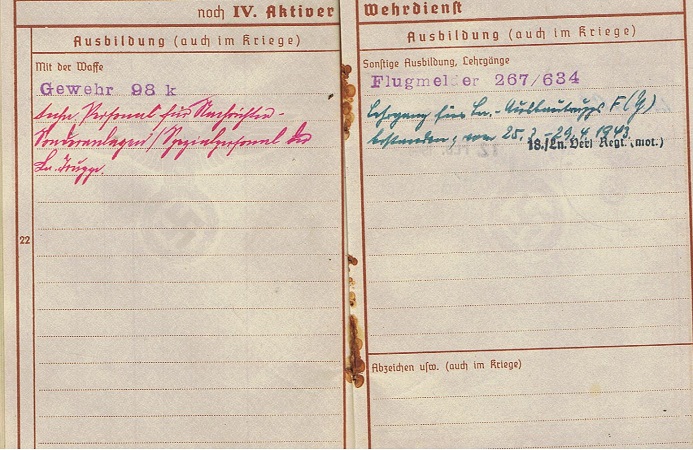 noch IV. Aktiver Wehrdienst
Ausbildung (auch im Kriege)
Mit der Waffe
Gewehr 98 k
techn. Personal für Nachrichten-
Sonderanlagen/Spezialpersonal der
Ln. Truppe.
22
Ausbildung (auch im Kriege)
Sonstige Ausbildung, Lehrgänge
Flugmelder 267/634
Lehrgang für Ln.-Ausbautrupps F(Y)
bestanden, vom 25. - 29.4.1943
18./Ln. Regt. (mot.)
Abzeichen usw. (auch im Kriege)